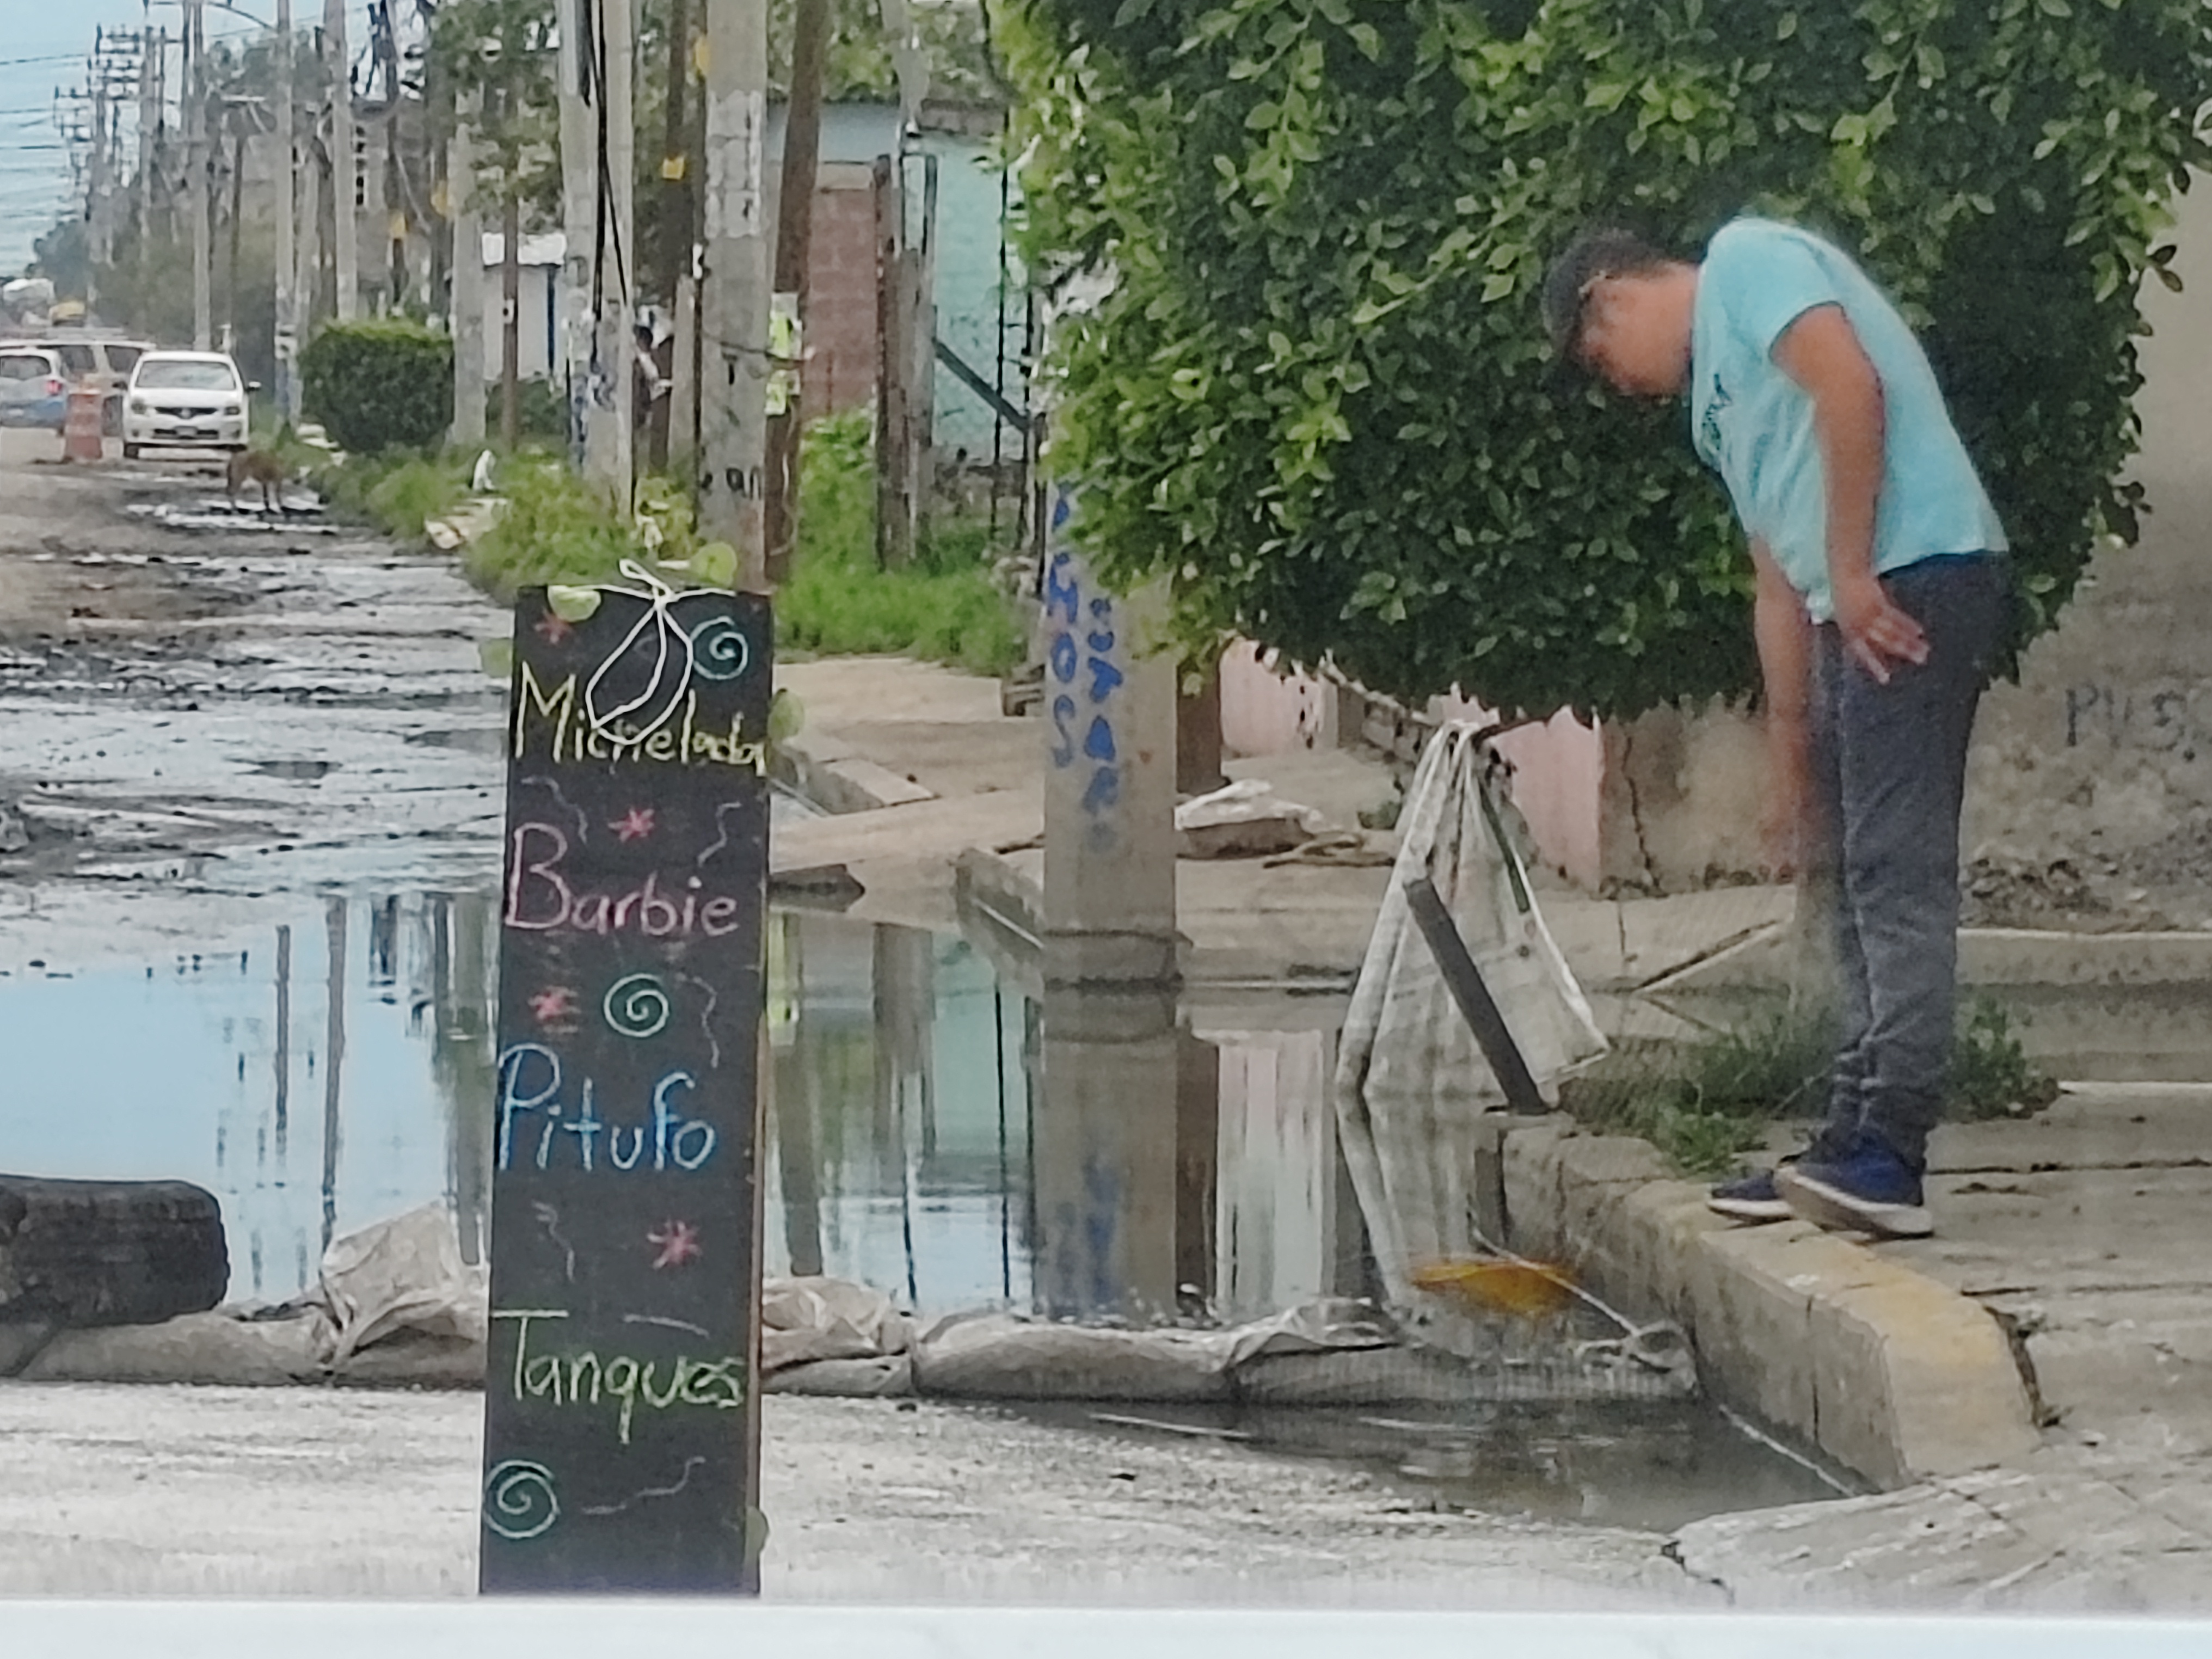 Michelada
Barbie
Pitufo
Tanques